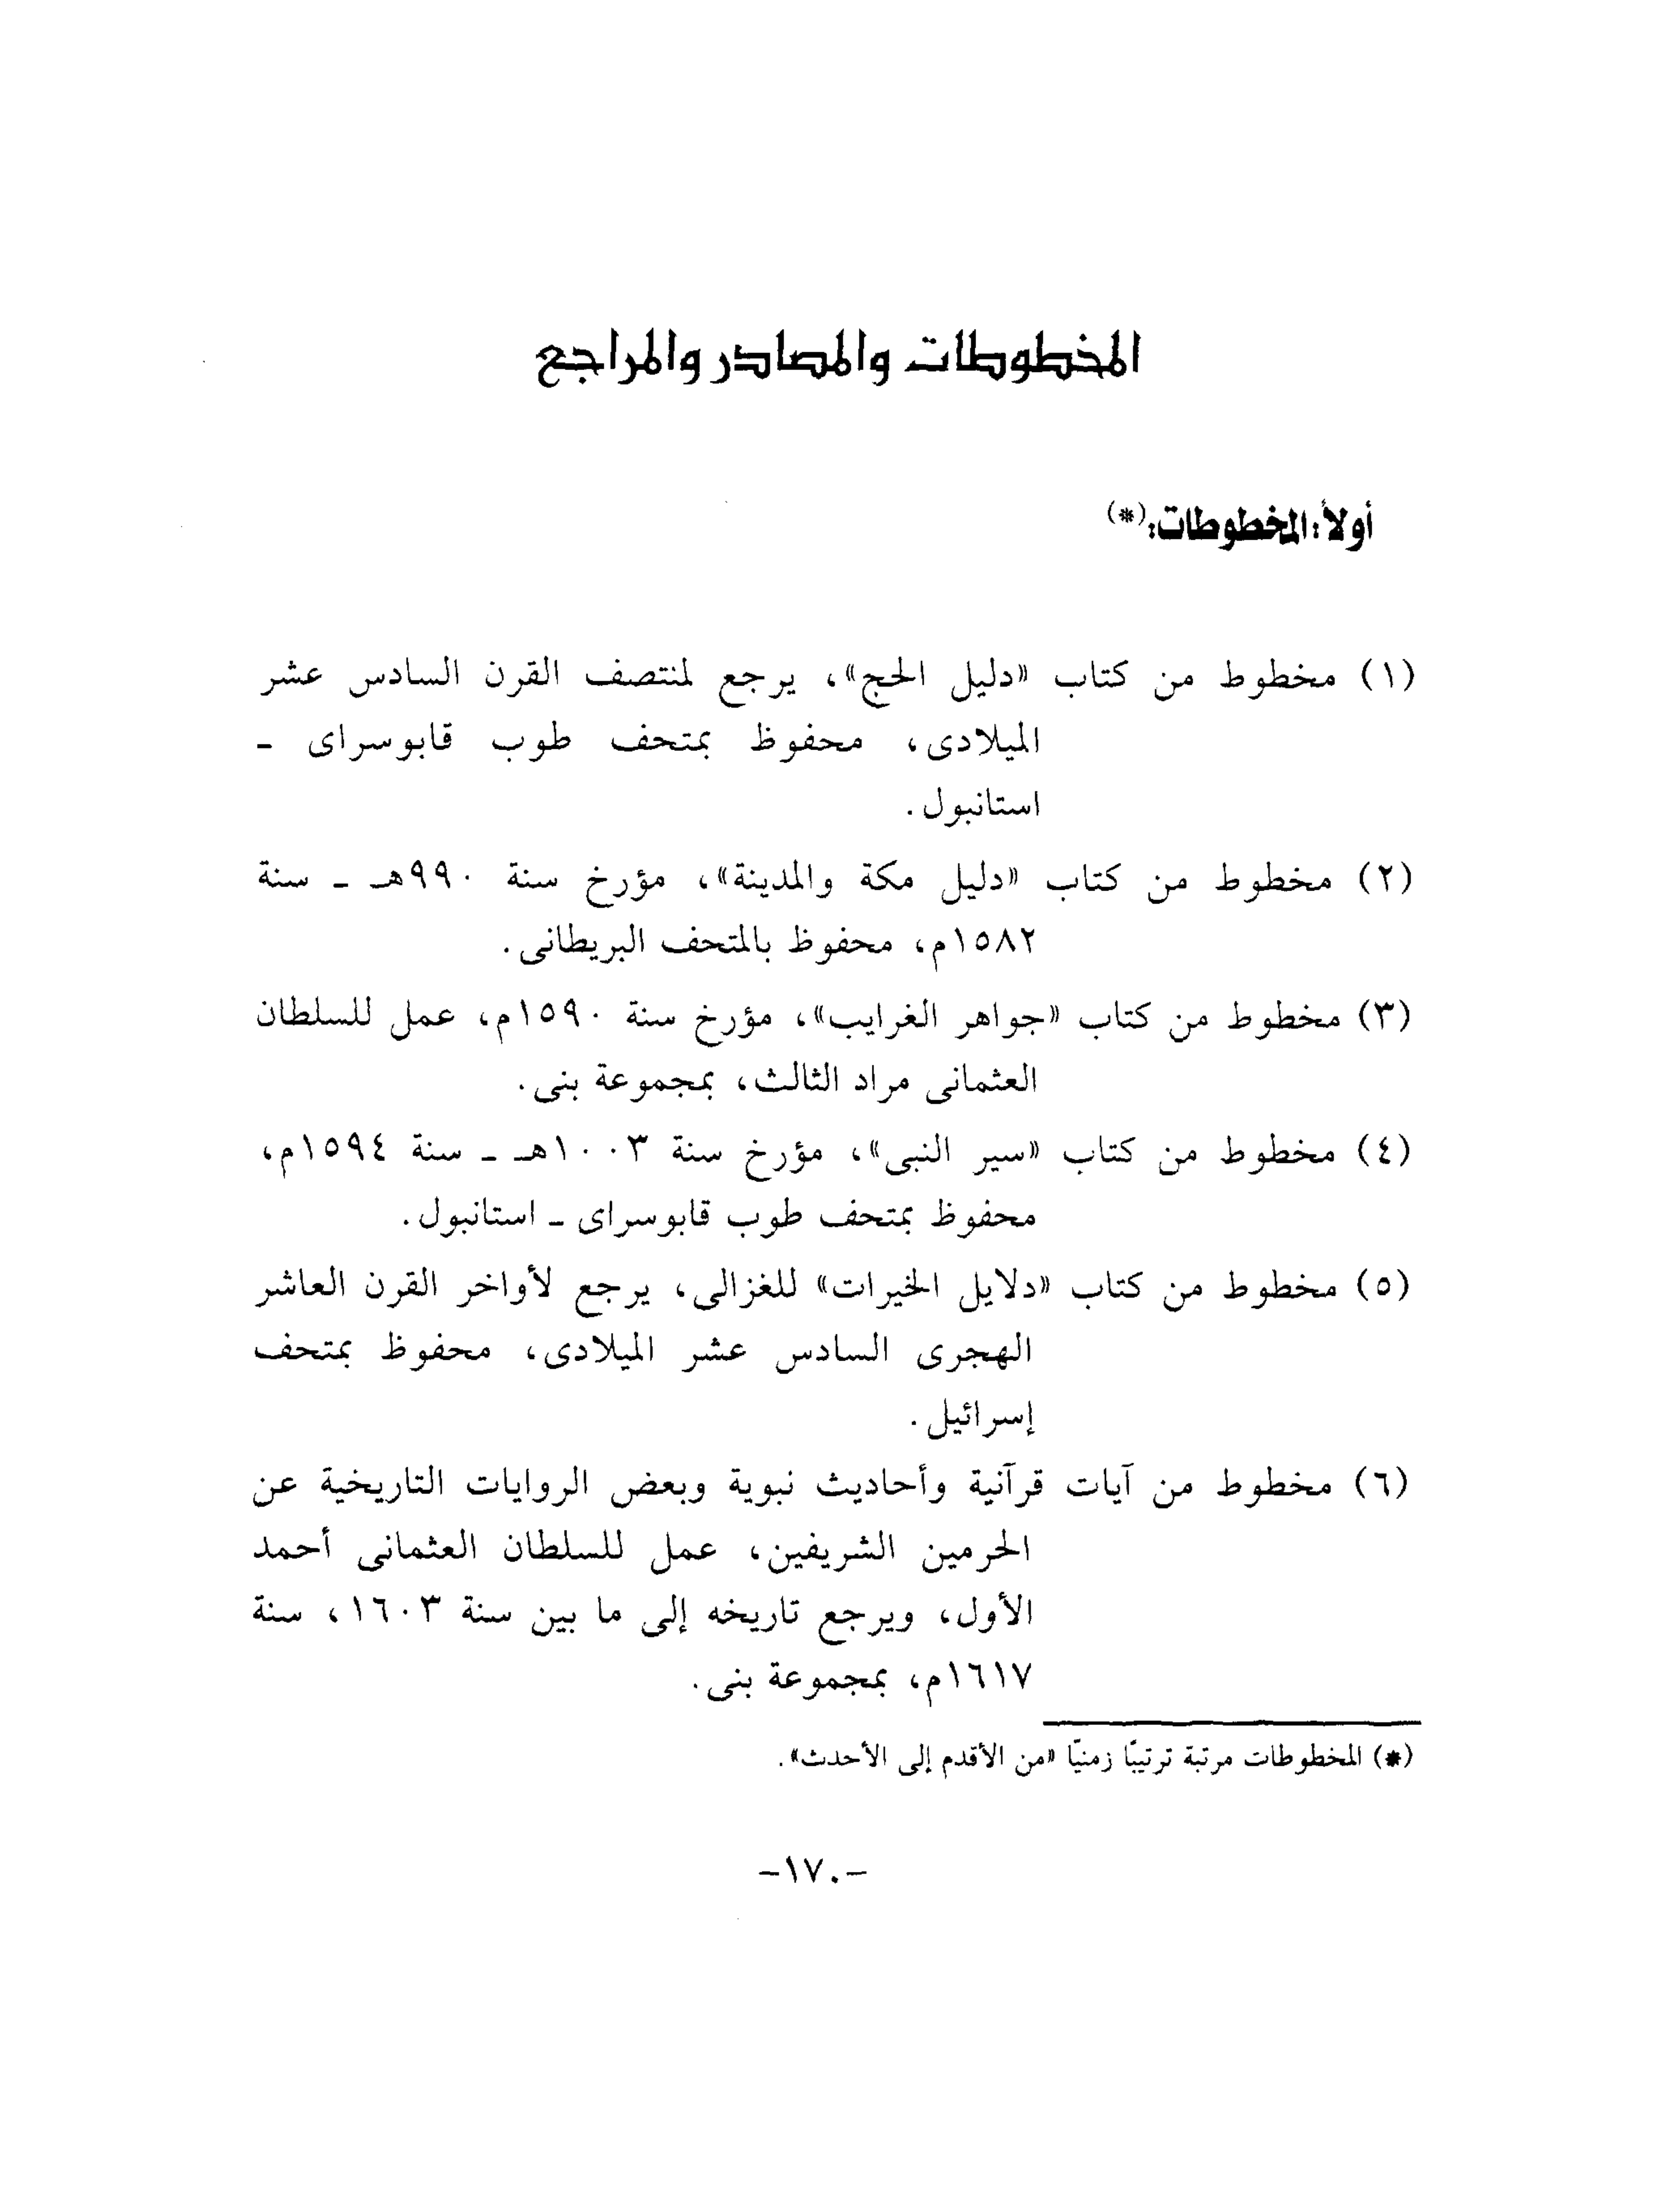 المخطوطات والمصادر والمراجع
أولاً: المخطوطات:(*)
(١) مخطوط من كتاب «دليل الحج»، يرجع لمنتصف القرن السادس عشر
الميلادى، محفوظ بمتحف طوب قابوسراى ـ
استانبول.
(٢) مخطوط من كتاب «دليل مكة والمدينة»، مؤرخ سنة ٩٩٠هـ ـ سنة
١٥٨٢م، محفوظ بالمتحف البريطانى.
(٣) مخطوط من كتاب «جواهر الغرايب»، مؤرخ سنة ١٥٩٠م، عمل للسلطان
العثمانى مراد الثالث، بمجموعة بنى.
(٤) مخطوط من كتاب «سير النبى»، مؤرخ سنة ١٠٠٣هـ ـ سنة ١٥٩٤م،
محفوظ بمتحف طوب قابوسراى ـ استانبول.
(٥) مخطوط من كتاب «دلايل الخيرات» للغزالى، يرجع لأواخر القرن العاشر
الهجرى السادس عشر الميلادى، محفوظ بمتحف
إسرائيل.
(٦) مخطوط من آيات قرآنية وأحاديث نبوية وبعض الروايات التاريخية عن
الحرمين الشريفين، عمل للسلطان العثمانى أحمد
الأول، ويرجع تاريخه إلى ما بين سنة ١٦٠٣، سنة
١٦١٧م، بمجموعة بنى.
(*) المخطوطات مرتبة ترتيبًا زمنيًا «من الأقدم إلى الأحدث».
-١٧٠-